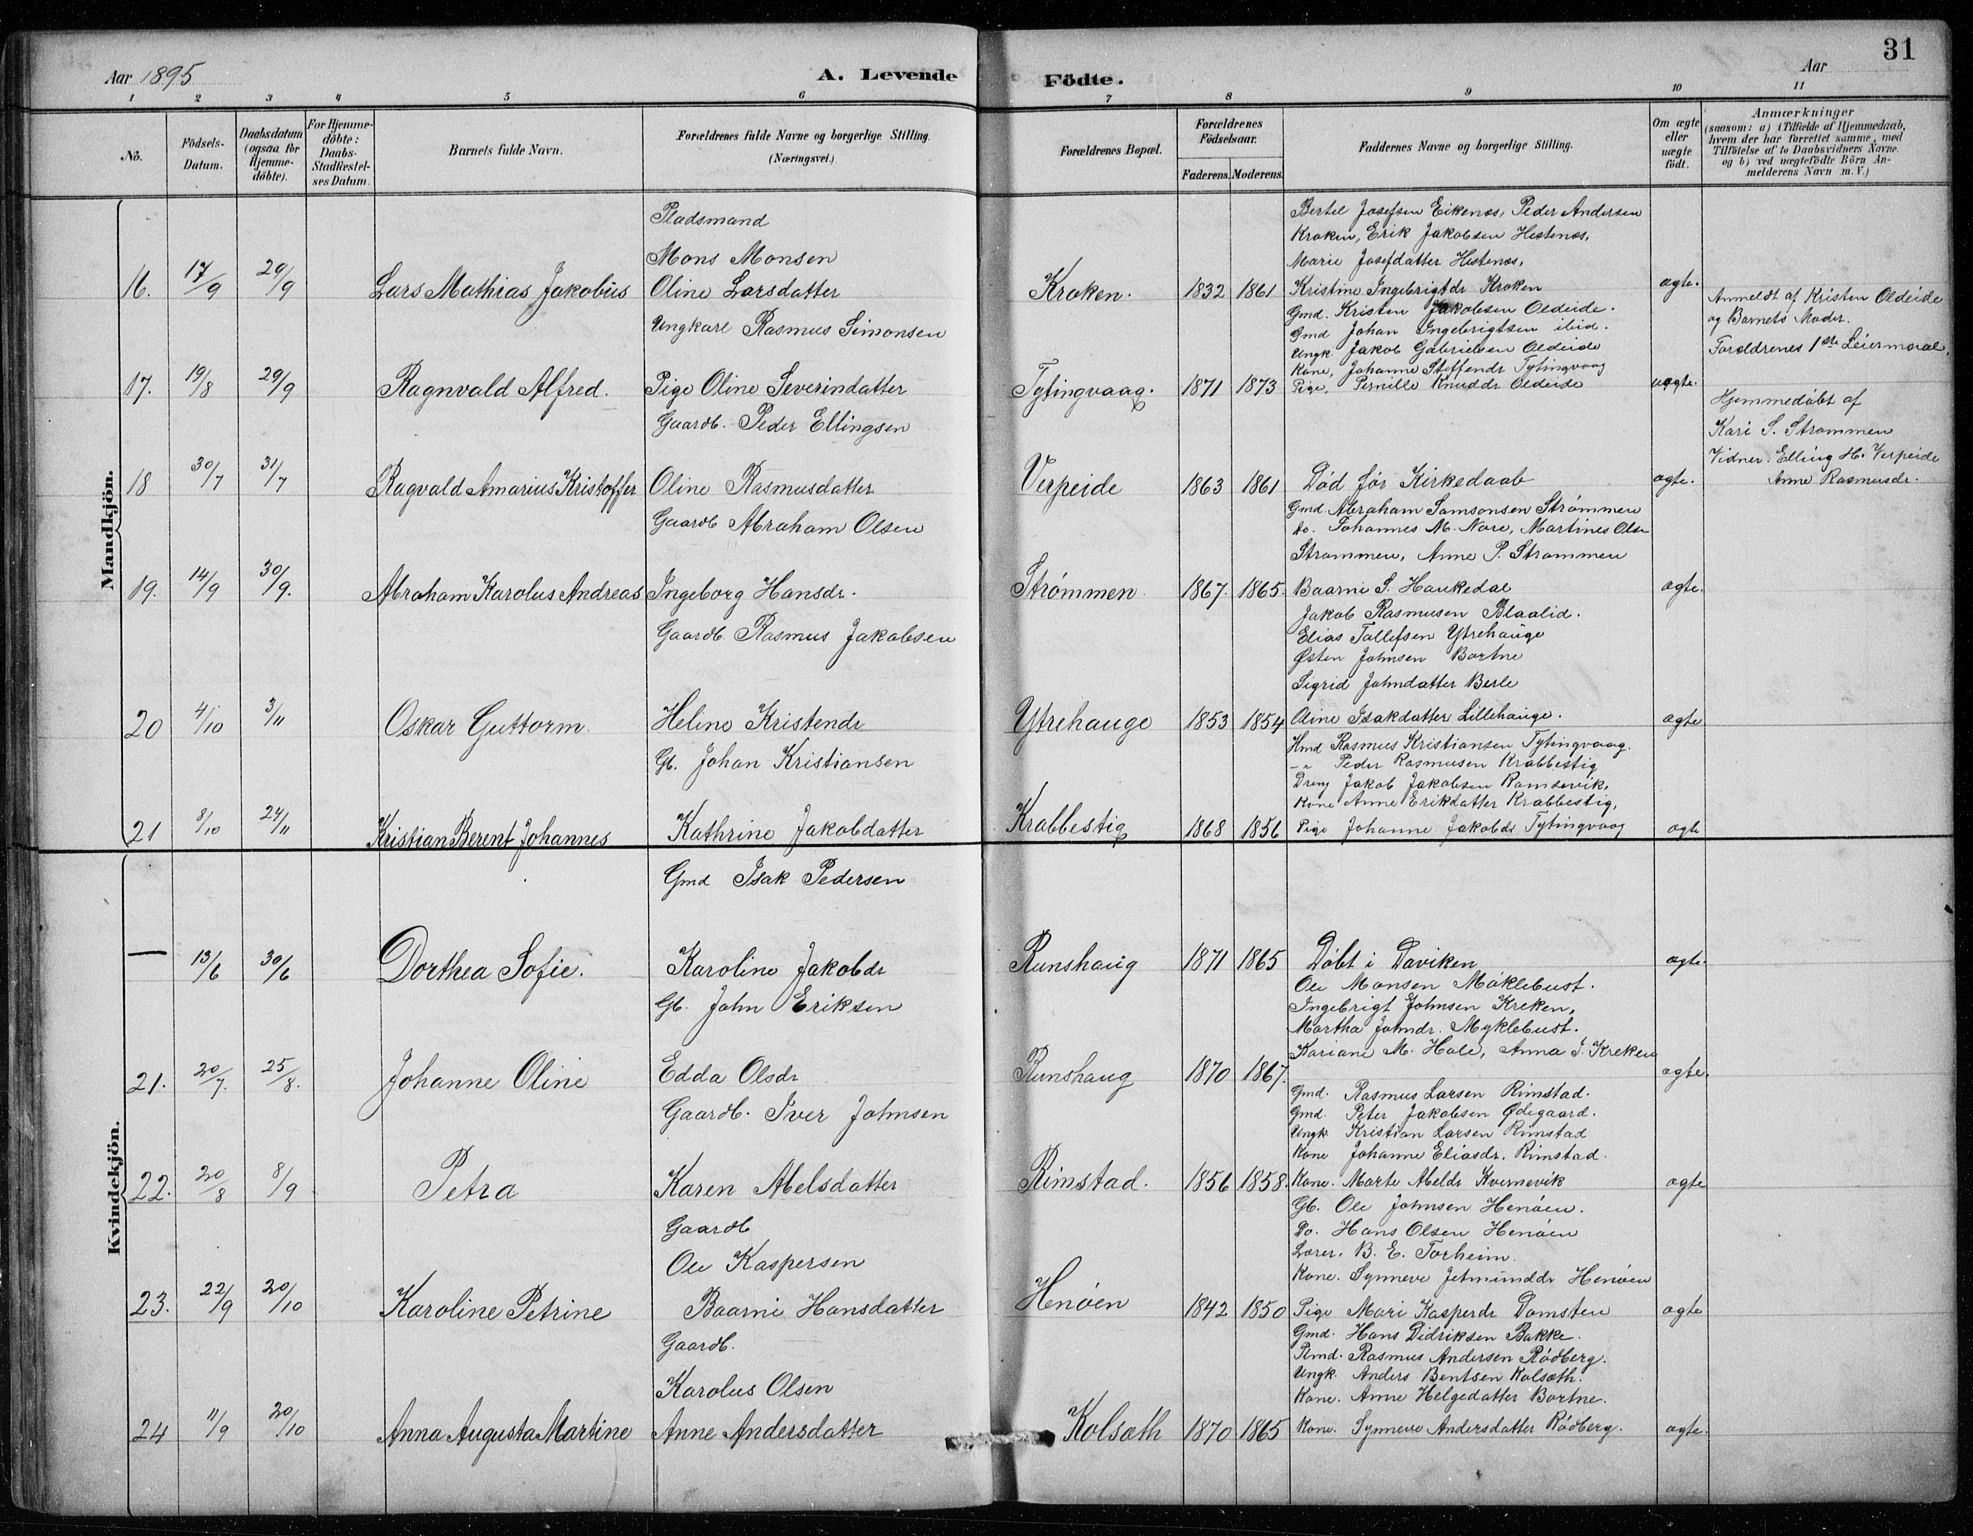 Aar 1895
A. Levende Födte.
Aar
31
1 2 3 4 5 6 7 8 9 10 11
No.
Födsels-Datum.
Daabsdatum (ogsaa för Hjemme-döbte).
For Hjemme-döbte: Daabs-Stadfæstel-ses Datum.
Barnets fulde Navn.
Forældrenes fulde Navne og borgerlige Stilling. (Næringsvei.)
Forældrenes Bopæl.
Forældrenes Födselsaar.
Faderens. Moderens.
Faddernes Navne og borgerlige Stilling.
Om ægte eller uægte födt.
Anmærkninger
(saasom: a) i Tilfælde af Hjemmedaab, hvem der har forrettet samme, med Tilföielse af to Daabsvidners Navne. og b) ved uægtefödte Börn An-melderens Navn m. V.)
Mandkjön.
Pladsmand
Mons Monsen
16. 17/9 29/9 Lars Mathias Jakobus Oline Larsdatter Kroken. 1832 1861 ægte.
Bertel Josefsen Eikenæs, Peder Andersen
Kroken, Erik Jakobsen Hestenæs,
Marie Josefdatter Hestenæs,
Kristine Ingebrigtdr Kroken
Ungkarl Rasmus Simonsen
17. 19/8 29/9 Ragnvald Alfred. Pige Oline Severindatter Tytingvaag. 1871 1873 uægte.
Gmd. Kristen Jakobsen Oldeide.
Gmd Johan Ingebrigtsen ibid.
Ungk. Jakob Gabrielsen Oldeide
Kone, Johanne Steffendr Tytingvaag
Pige, Pernille Knuddr Oldeide
Anmeldt af Kristen Oldeide
og Barnets Moder.
Forældrenes 1ste Leiermaal.
Gaardb. Peder Ellingsen
18 30/7 31/7 Ragvald Amarius Kristoffer Oline Rasmusdatter Verpeide 1863 1861 Död för Kirkedaab ægte.
Hjemmedøbt af
Kari S. Strømmen
Vidner. Elling H. Verpeide
Anne Rasmusdr.
Gaardb Abraham Olsen
19. 14/9 30/9. Abraham Karolus Andreas Ingeborg Hansdr. Strømmen. 1867. 1865. ægte.
Gmd Abraham Samsonsen Strømmen
Do. Johannes M. Nore, Martines Olsen
Strømmen, Anne P. Strømmen
Baarni S. Haukedal
Gaardb Rasmus Jakobsen
20 4/10 3/11 Oskar Guttorm. Heline Kristendr Ytrehauge 1853 1854 ægte
Jakob Rasmusen Blaalid.
Elias Tollefsen Ytrehauge
Østen Johnsen Bortne
Sigrid Johndatter Berle
Oline Isakdatter Lillehauge.
Gb. Johan Kristiansen
21 8/10 24/11 Kristian Berent Johannes Kathrine Jakobdatter Krabbestig 1868 1856 ægte
Hmd Rasmus Kristiansen Tytingvaag.
-"- Peder Rasmusen Krabbestig
Dreng Jakob Jakobsen Ramsevik,
Kone Anne Erikdatter Krabbestig,
Pige Johanne Jakobdr Tytingvaag
Kvindekjön.
Gmd Isak Pedersen
— 13/6 30/6 Dorthea Sofie. Karoline Jakobdr Runshaug 1871 1865 Døbt i Daviken ægte
Gb. John Eriksen
21. 20/7. 25/8. Johanne Oline Edda Olsdr Runshaug 1870 1867. ægte.
Ole Monsen Møklebust.
Ingebrigt Johnsen Kreken,
Martha Johndr. Myklebust.
Kariane M. Hole, Anna J. Kreken
Gaardb. Iver Johnsen
22. 20/8 8/9 Petra Karen Abelsdatter Rimstad. 1856 1858. ægte
Gmd. Rasmus Larsen Rimstad.
Gmd. Peter Jakobsen Ødegaard.
Ungk. Kristian Larsen Rimstad
Kone Johanne Eliasdr. Rimstad.
Kone. Marte Abeldr Kvernevik
Gaardb
Ole Kaspersen
23. 22/9 20/10 Karoline Petrine Baarni Hansdatter Henøen 1842 1850 ægte
Gb. Ole Johnsen Henøen.
Do. Hans Olsen Henøen
Lærer. B. E. Torheim.
Kone. Synneve Jetmunddr Henøen
Pige Mari Kasperdr Domsten
Gaardb.
Karolus Olsen
24 11/9 20/10 Anna Augusta Martine Anne Andersdatter Kolsæth 1870 1865 ægte.
Gmd. Hans Didriksen Bakke.
Plmd. Rasmus Andersen Rødberg.
Ungk. Anders Bentsen Kolsæth.
Kone. Anne Helgedatter Bortne.
Kone. Synneve Andersdatter Rødberg.